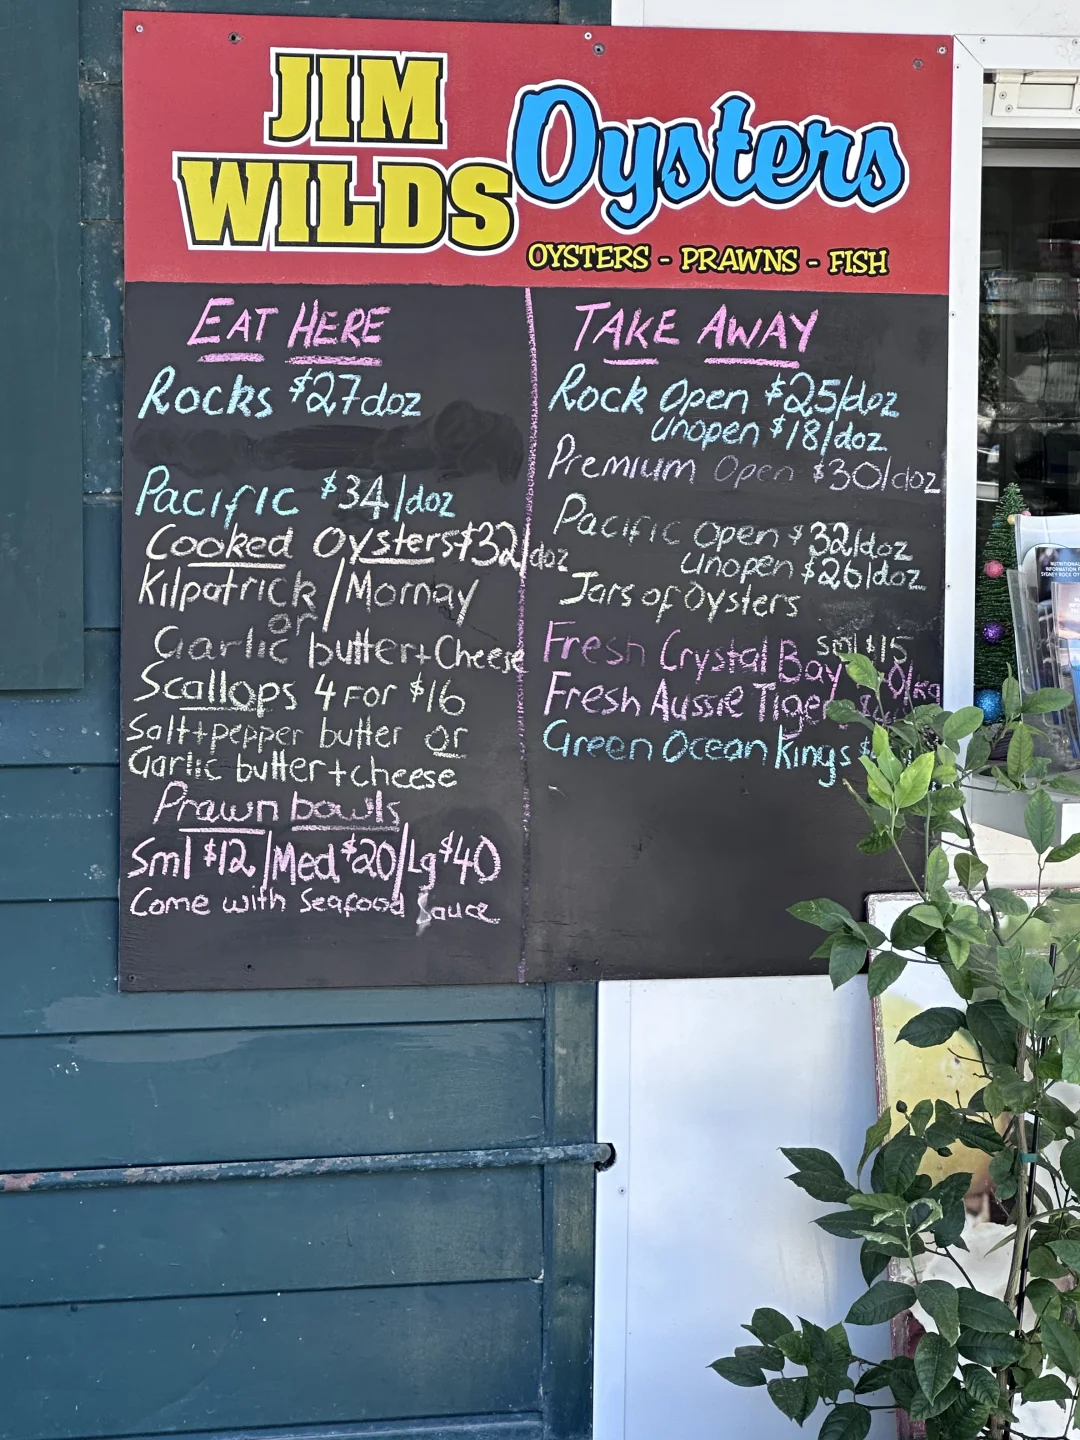 JIM
WILDS
Oysters
OYSTERS - PRAWNS - FISH
EAT HERE
Rocks $27doz
Pacific $34/doz
Cooked Oysters $32/doz
Kilpatrick/Mornay
or
Garlic butter+Cheese
Scallops 4 FOR $16
Salt+pepper butter or
Garlic butter+cheese
Prawn bowls
Sml $12/Med $20/Lg $40
Come with Seafood Sauce
TAKE AWAY
Rock Open $25/doz
Unopen $18/doz
Premium Open $30/doz
Pacific Open $32/doz
Unopen $26/doz
Jars of Oysters
sml $15
Fresh Crystal Bay /kg
Fresh Aussie Tiger
Green Ocean Kings $
NUTRITIONAL
INFORMATION
SYDNEY ROCK